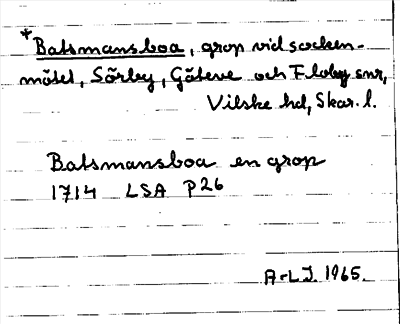 *Batsmansboa, grop vid socken-
mötet, Sörby, Göteve och Floby snr,
Vilske hd, Skar. l.
Batsmansboa en grop
1714 LSA P26
A-LJ. 1965.